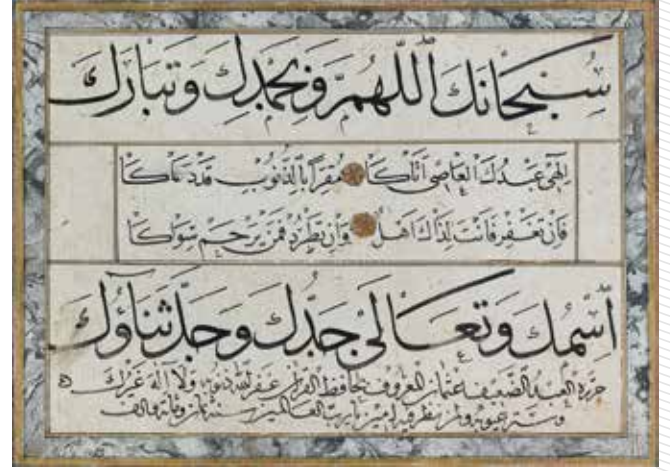 سُبْحَانَكَ اللّٰهُمَّ وَبِحَمْدِكَ وَتَبَارَكَ
اِلٰهِي عَبْدُكَ الْعَاصِي اَتَاكَا مُقِرًّا بِالذُّنُوبِ وَقَدْ دَعَاكَا
فَاِنْ تَغْفِرْ فَاَنْتَ لِذَاكَ اَهْلٌ وَاِنْ تَطْرُدْ فَمَنْ يَرْحَمْ سِوَاكَا
اسْمُكَ وَتَعَالٰى جَدُّكَ وَجَلَّ ثَنَاؤُكَ
حرره العبد الضعيف عثمان المعروف بحافظ القرآن غفر الله ذنوبه وَلَا اِلٰهَ غَيْرُكَ
وستر عيوبه ولمن نظر فيه امين يا رب العالمين سنة ثمان ومائة والف